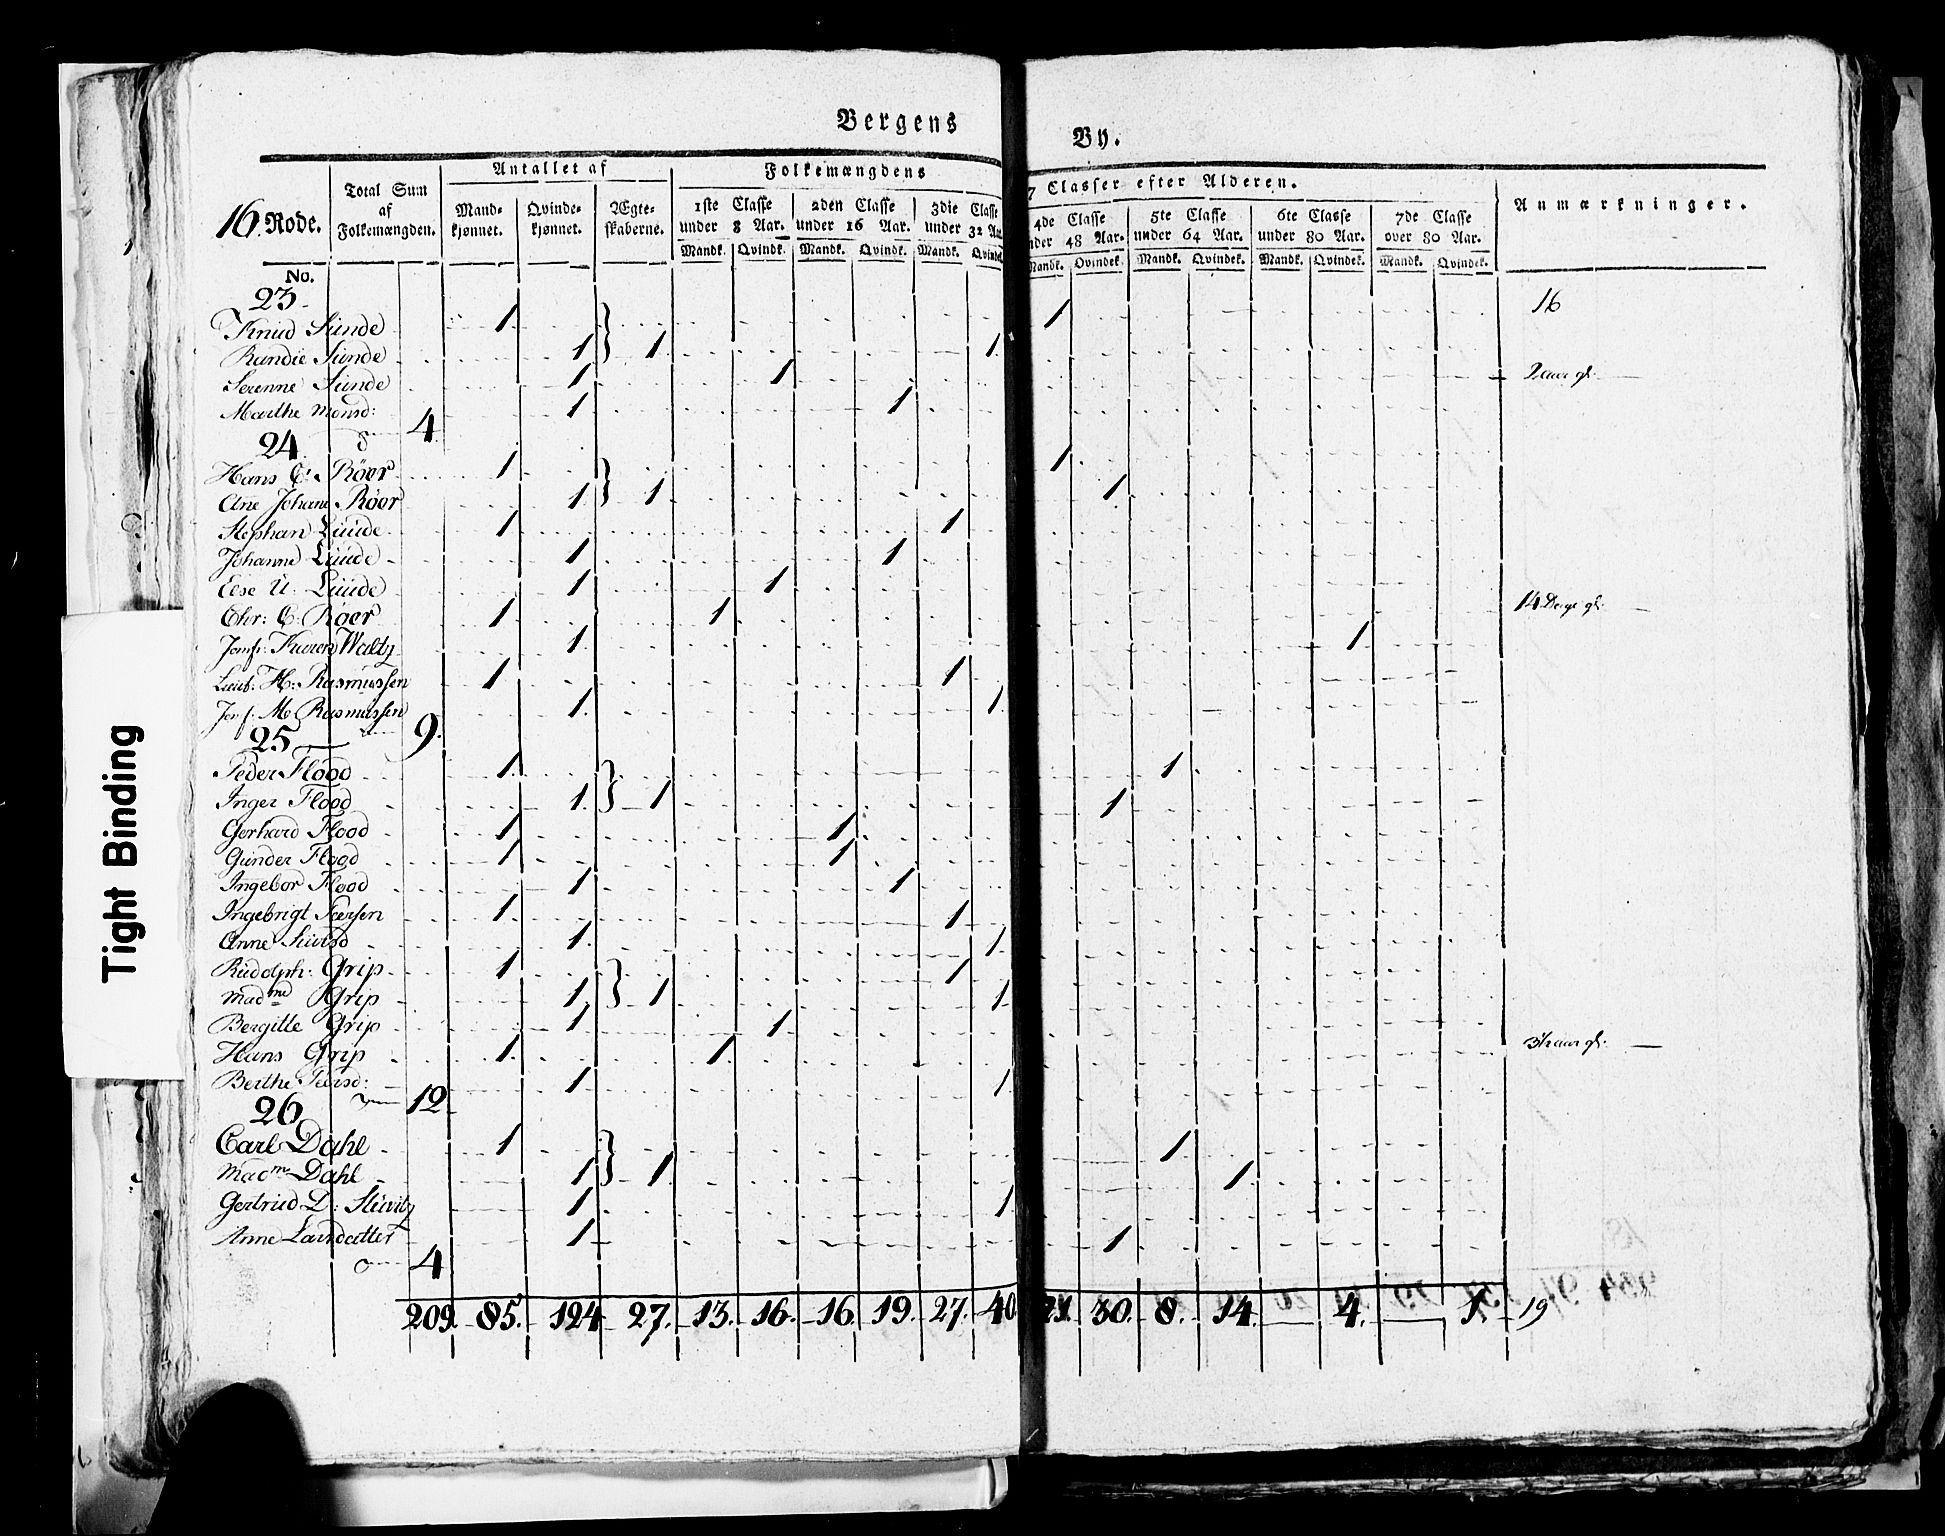 Bergens By.
16. Rode. Total Sum af Folkemængden. Antallet af Folkemængdens 7 Classer efter Alderen. Anmærkninger.
Mandkjønnet. Qvindekjønnet. Ægteskaberne. 1ste Classe under 8 Aar. 2den Classe under 16 Aar. 3die Classe under 32 Aar. 4de Classe under 48 Aar. 5te Classe under 64 Aar. 6te Classe under 80 Aar. 7de Classe over 80 Aar.
Mandk. Qvindk. Mandk. Qvindk. Mandk. Qvindek. Mandk. Qvindek. Mandk. Qvindek. Mandk. Qvindek. Mandk. Qvindek.
No.
23 16
Knud Sunde 1 1
Randie Sunde 1 } 1 1
Serenne Sunde 1 1 2 aar gl.
Marthe Monsd: 1 1
4
24
Hans C. Röer 1 1
Ane Johane Röer 1 } 1 1
Stephan Lunde 1 1
Johanne Lunde 1 1
Else U. Lunde 1 1
Chr: C. Röer 1 1 14 Dage gl.
Jomfr. Karen Waltz 1 1
Lieut: H: Rasmussen 1 1
Jomf. M. Rasmussen 1 1
9.
25
Peder Flood 1 1
Inger Flood 1 } 1 1
Gerhard Flood 1 1
Gunder Flood 1 1
Ingebor Flood 1 1
Ingebrigt Iversen 1 1
Anne 1 1
Rudolph: Grip 1 1
Mad^me Grip 1 } 1 1
Bergitte Grip 1 1
Hans Grip 1 1 aar gl.
Berthe 1 1
12
26
Carl Dahl 1 1
Mad^m Dahl 1 } 1 1
Gertrud D: 1 1
Anne 1 1
4
209. 85. 124 27. 13. 16. 16 19. 27. 40 21. 30. 8. 14. 4. 1. 19
Tight Binding